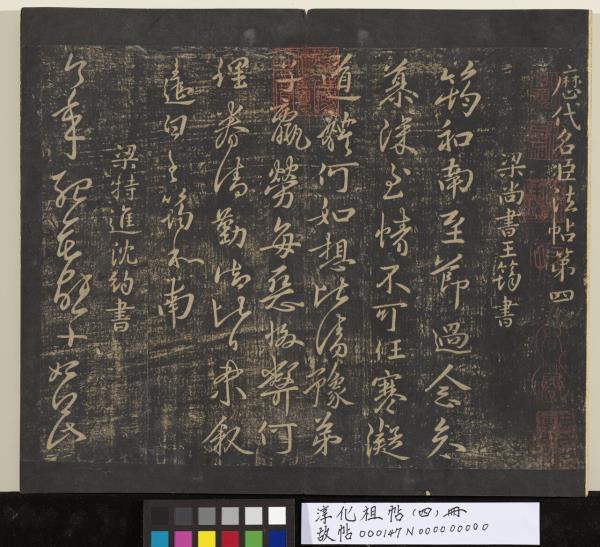 歷代名臣法帖第四
梁尚書王筠書
筠和南至節過念哀
慕深至情不可任寒凝
道體何如想比清豫弟
子羸勞每惡弊何
理眷清勤比敘
遣白王筠和南
梁特進沈約書
今年
淳化祖帖(四)冊
故帖000147N000000000